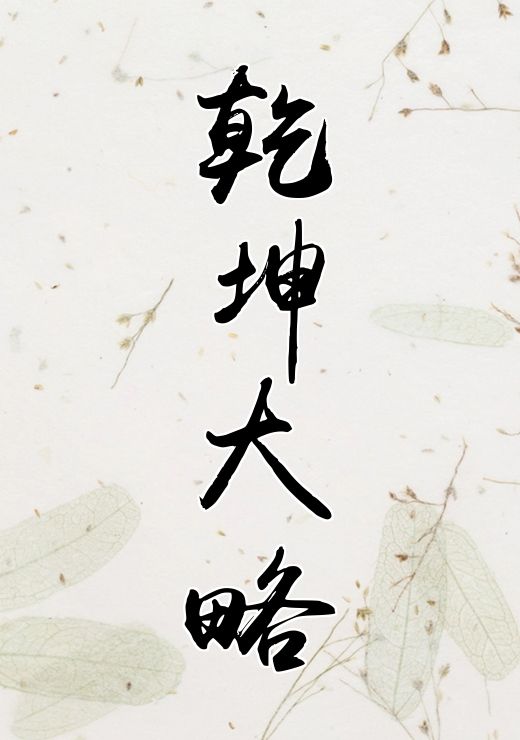 乾坤大略